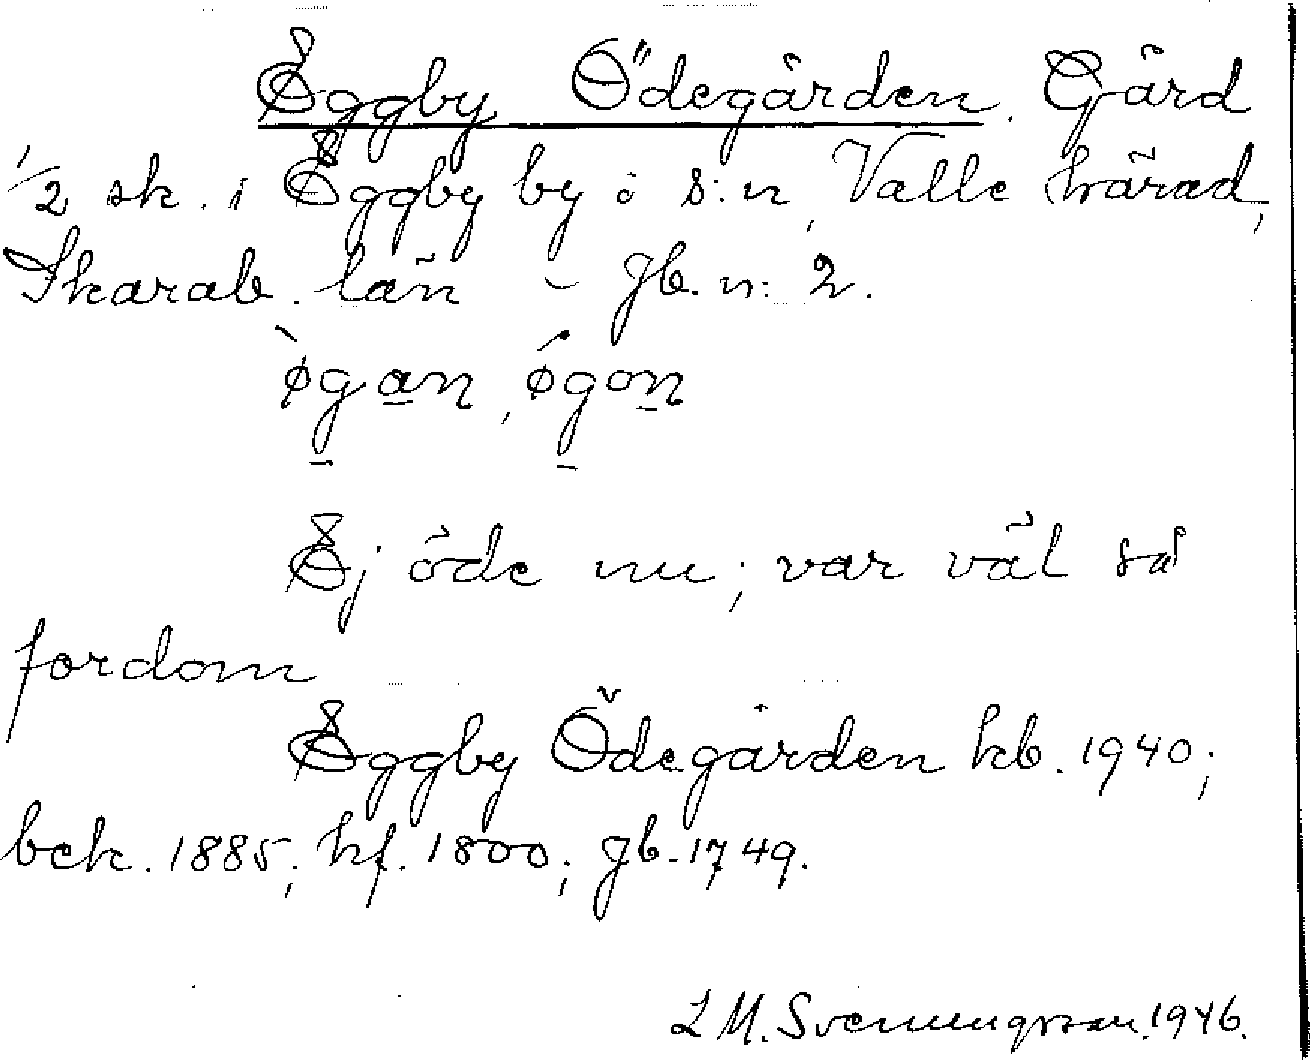 Eggby Ödegården. Gård
1/2 sk. i Eggby by o s:n, Valle härad,
Skarab. län - gb. n: 2.
ø̀gan, ǿgon
Ej öde nu; var väl så
fordom
Eggby Ödegården kb. 1940;
bek. 1885; kf. 1800; gb. 1749.
L M. Svenungsson. 1946.